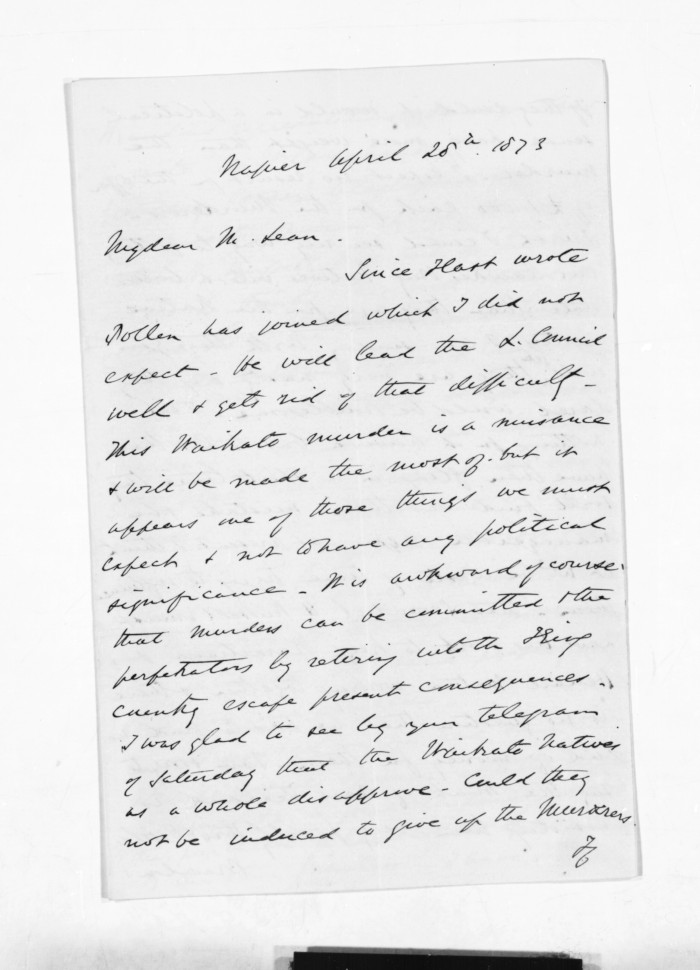 Napier April 28th. 1873
My dear McLean.
Since I last wrote
Pollen has joined which I did not
expect - He will lead the L. Council
well & gets rid of that difficulty -
This Waikato murder is a nuisance
& will be made the most of. but it
appears one of those things we must
expect & not to have any political
significance - It is awkward of course.
that murders can be committed & the
perpetrators by retiring into the King
country escape present consequences.
I was glad to see by your telegram
of Saturday that the Waikato Natives
as a whole disapprove - Could they
not be induced to give up the Murderers.
If